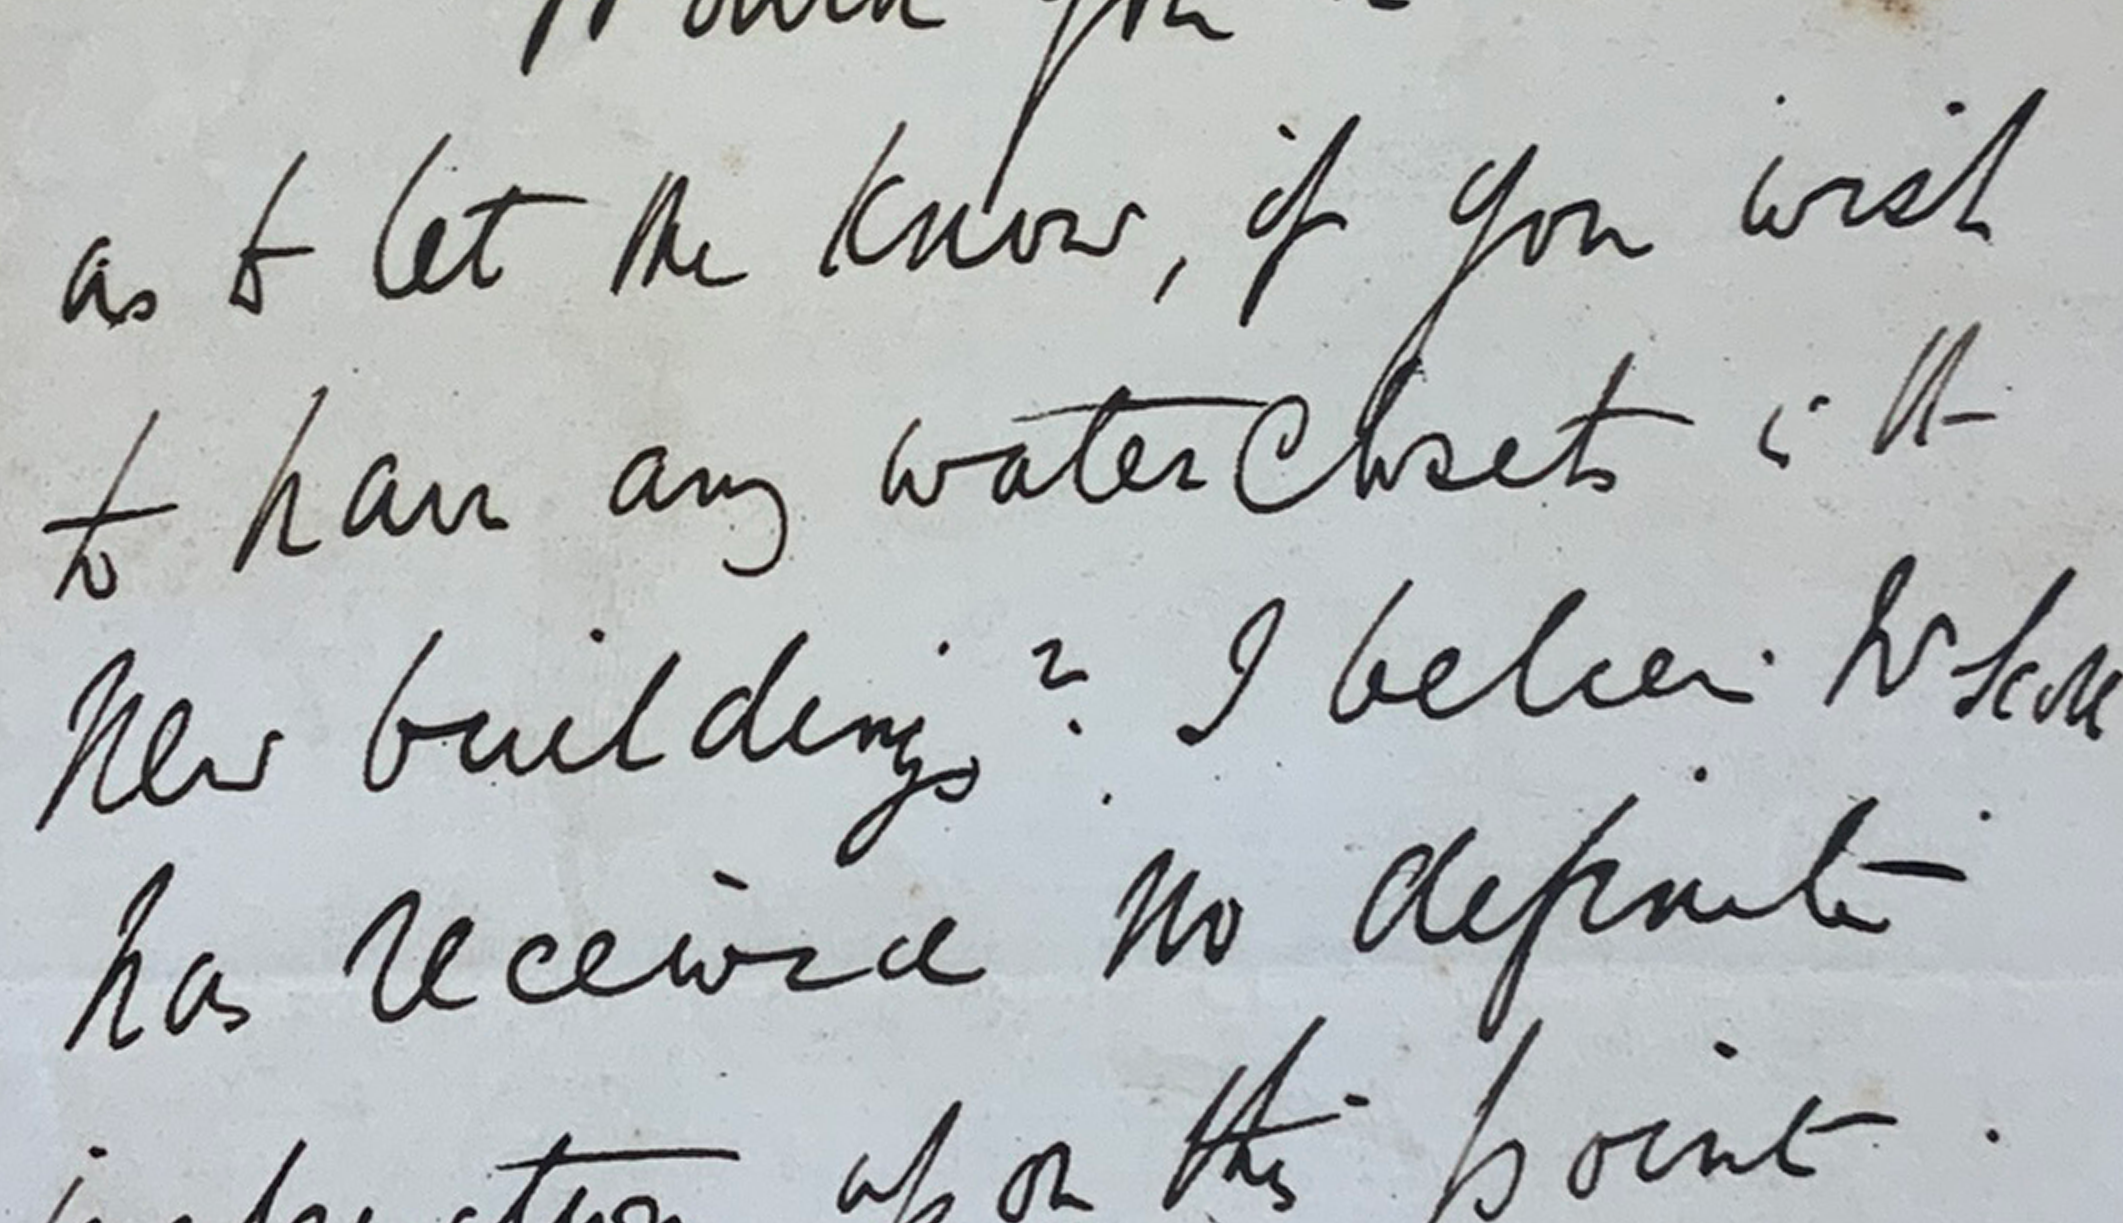 Would you
as to let me know, if you wish
to have any water Closets in the
New buildings? I believe Mr Scott
has received no definite
instruction upon this point.